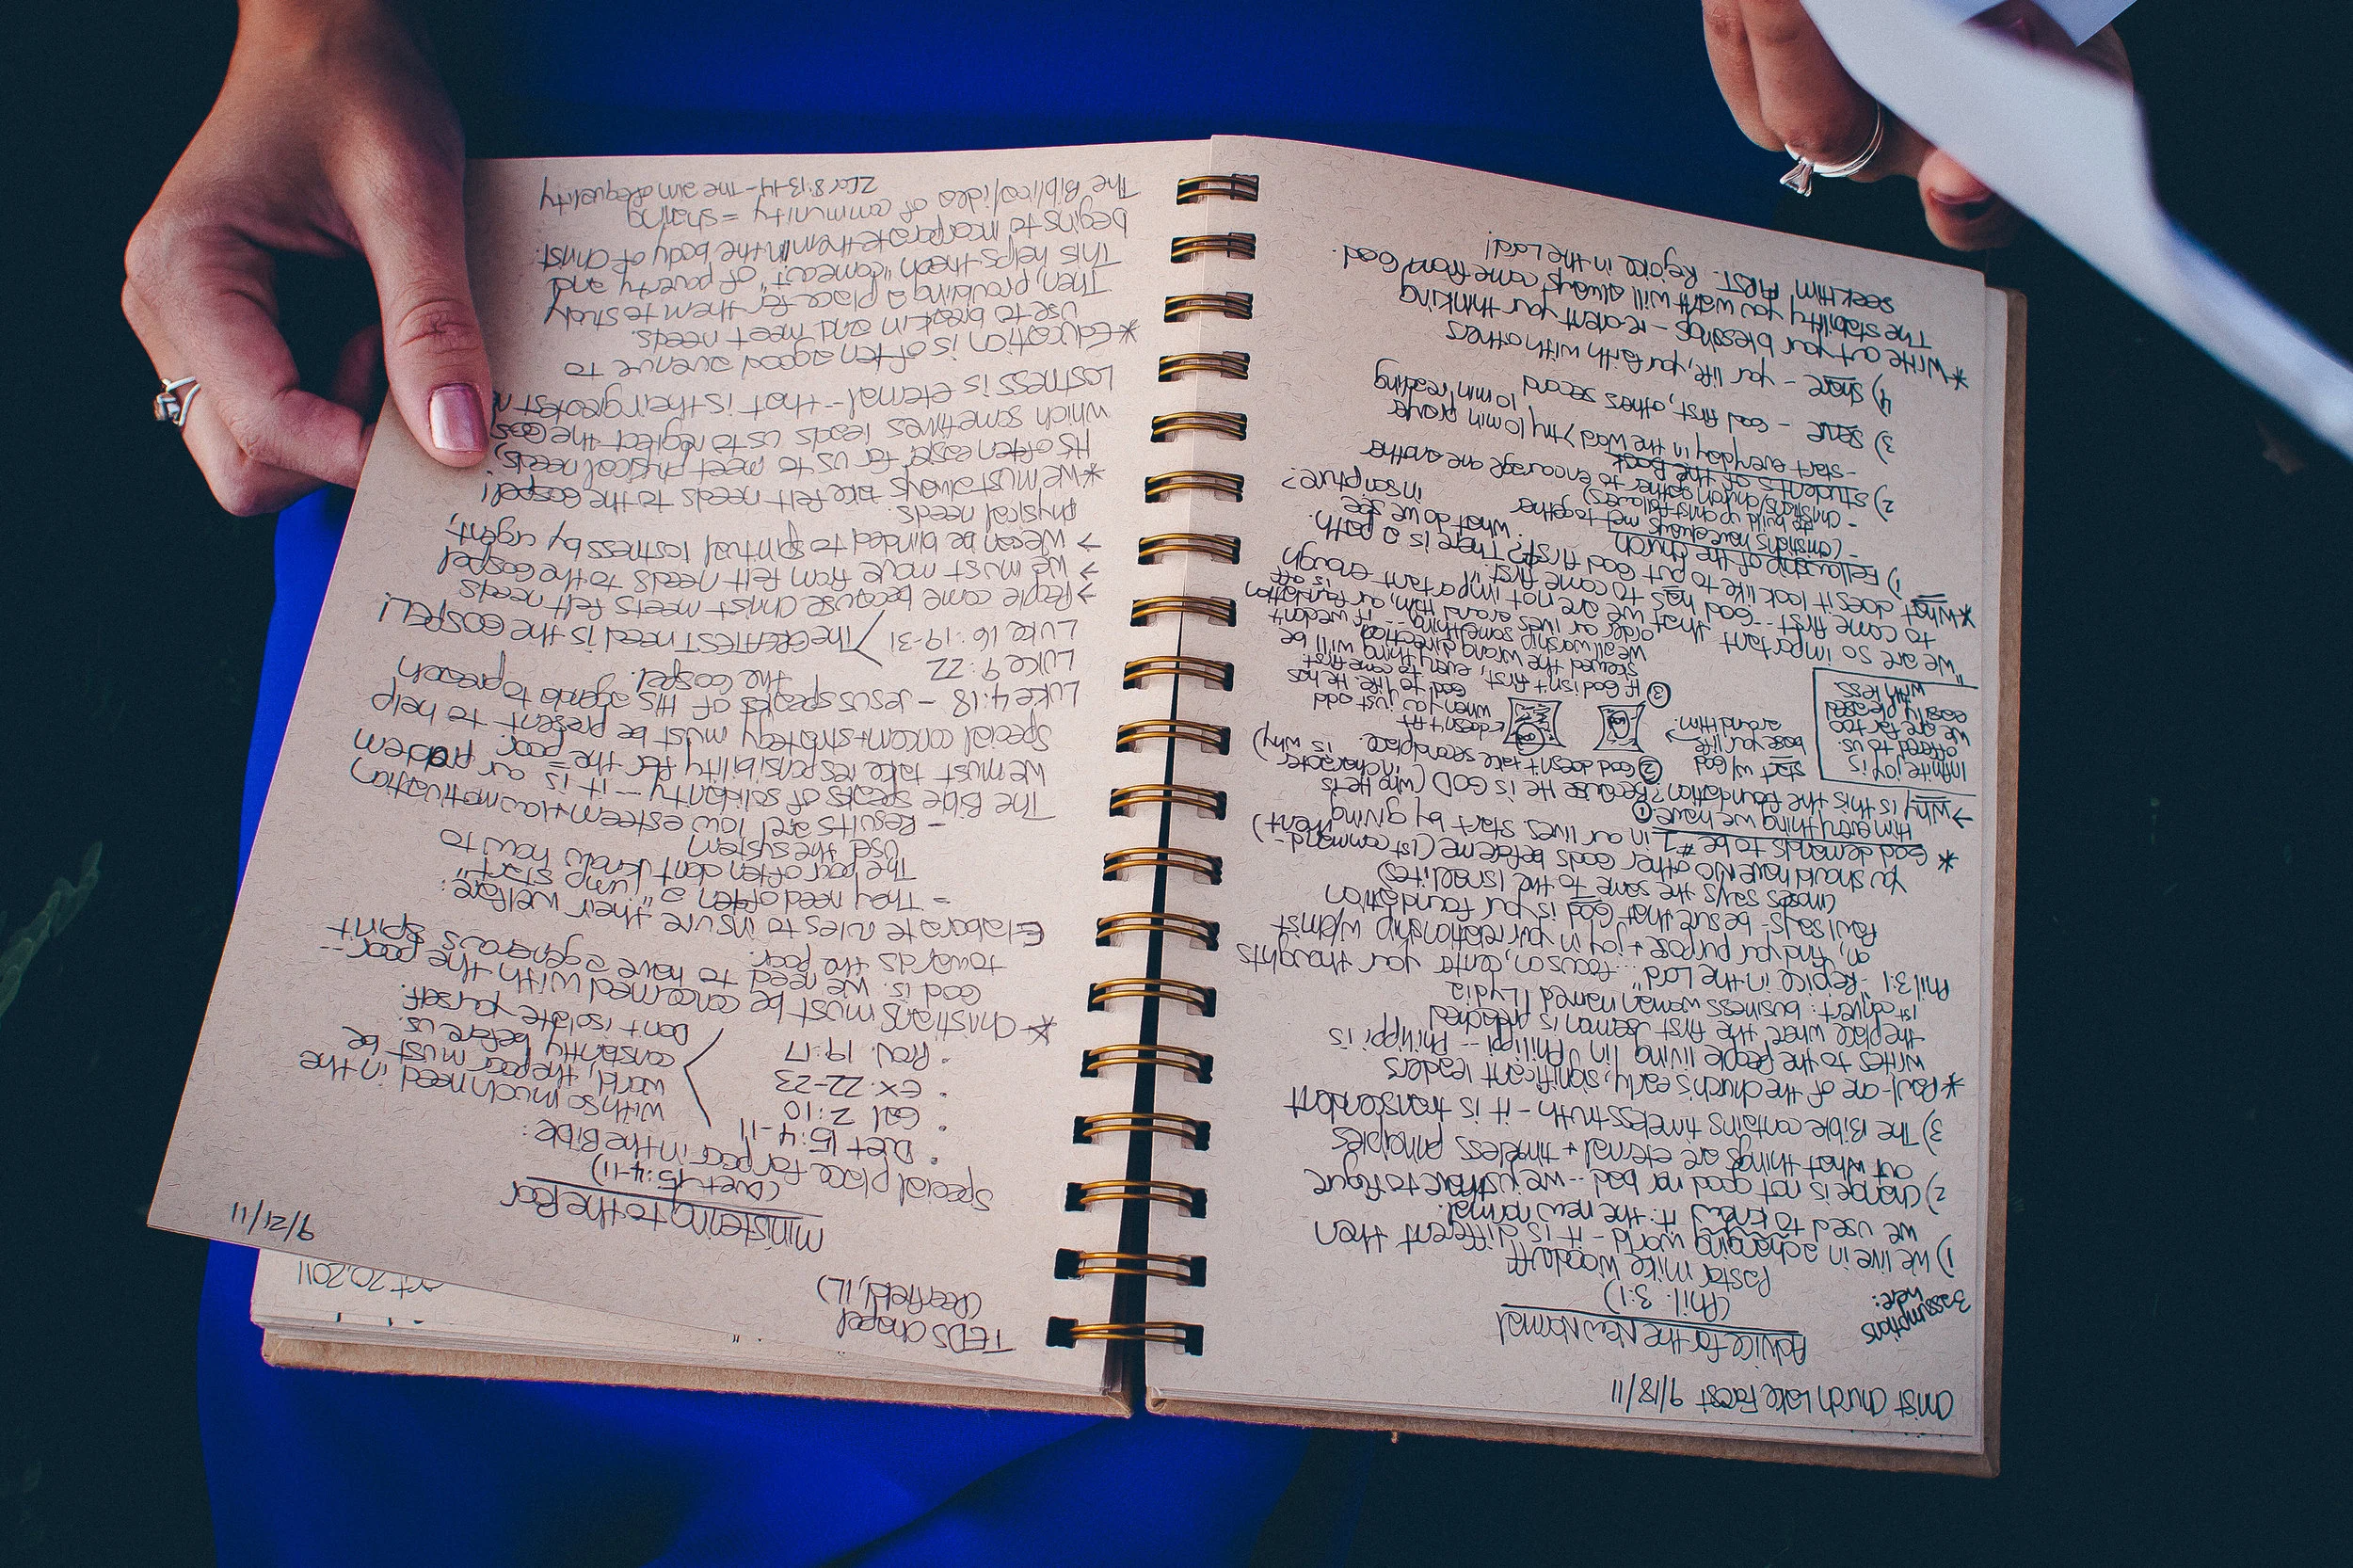 Christ Church Lake Forest 9/18/11
Advice for the New Normal
(Phil. 3:1)
Pastor Mike Woodruff
3 assumptions
here:
1) We live in a changing world - it is different then
we used to know it: the new normal.
2) Change is not good nor bad -- we just have to figure
out what things are eternal + timeless principles
3) The Bible contains timeless truth - it is transcendent
*Paul - one of the church's early, significant leaders
writes to the people living in Philippi -- Philippi is
the place where the first sermon is preached
1st convert: business woman named Lydia
Phil 3:1 - "Rejoice in the Lord" ... focus on, center your thoughts
on, find your purpose + joy in your relationship w/Christ
Paul says - be sure that God is your foundation
(Moses says the same to the Israelites)
You should have NO other Gods before me (1st command-
ment)
* God demands to be #1 in our lives. Start by giving
Him everything we have
→ Why is this the foundation? ① Because He is GOD (who He is
in character is why)
② God doesn't take second place.
start w/ God
base your life
around Him.
← doesn't fit
when you just add
God to life. He has
to come first
③ If God isn't first, everything will be
skewed the wrong direction
We all worship something -- if we don't
order our lives around Him, our foundation
is off
Infinite joy is
offered to us.
We are far too
easily pleased
with less
"We are so important that we are not important enough
to come first -- God has to come first"
*What does it look like to put God first? There is a path.
What do we see
in scripture?
1) Fellowship of the church
- Christians have always met together
(we build up Christ-followers)
- Christians/church gather to encourage one another
2) Students of the Book
- start everyday in the word > try 10 min prayer
10 min reading
3) Serve - God first, others second
4) Share - your life, your faith with others
*Write out your blessings - reorient your thinking
The stability you want will always come from God.
Seek Him FIRST. Rejoice in the Lord!
TEDS Chapel
(Deerfield, IL)
9/21/11
Ministering to the Poor
(Duet 15:4-11)
Special place for poor in the Bible:
• Duet 15:4-11
• Gal 2:10
• Ex. 22-23
• Prov. 19:17
With so much need in the
world, the poor must be
constantly before us.
Don't isolate yourself.
* Christians must be concerned with the poor --
God is. We need to have a generous spirit
towards the poor.
Elaborate rules to insure their welfare:
- They need often a "jump start"
The poor often don't know how to
use the system
- Results are low esteem + low motivation
The Bible speaks of solidarity -- it is our problem
We must take responsibility for the poor.
Special concern + strategy must be present to help
Luke 4:18 - Jesus speaks of His agenda to preach
the Gospel.
Luke 9:22
Luke 16:19-31
The GREATEST need is the GOSPEL!
→ People come because Christ meets felt needs
→ We must move from felt needs to the Gospel
→ We can be blinded to spiritual lostness by urgent,
physical needs
*We must always take felt needs to the Gospel!
It's often easier for us to meet physical needs,
which sometimes leads us to neglect the
Lostness is eternal -- that is their greatest
*Education is often a good avenue to
use to break in and meet needs.
Then, providing a place for them to study
This helps them "come out" of poverty and
begins to incorporate them in the body of Christ.
The Biblical idea of community = sharing
2 Cor 8:13-14 - The aim of equality
Oct 20, 2011